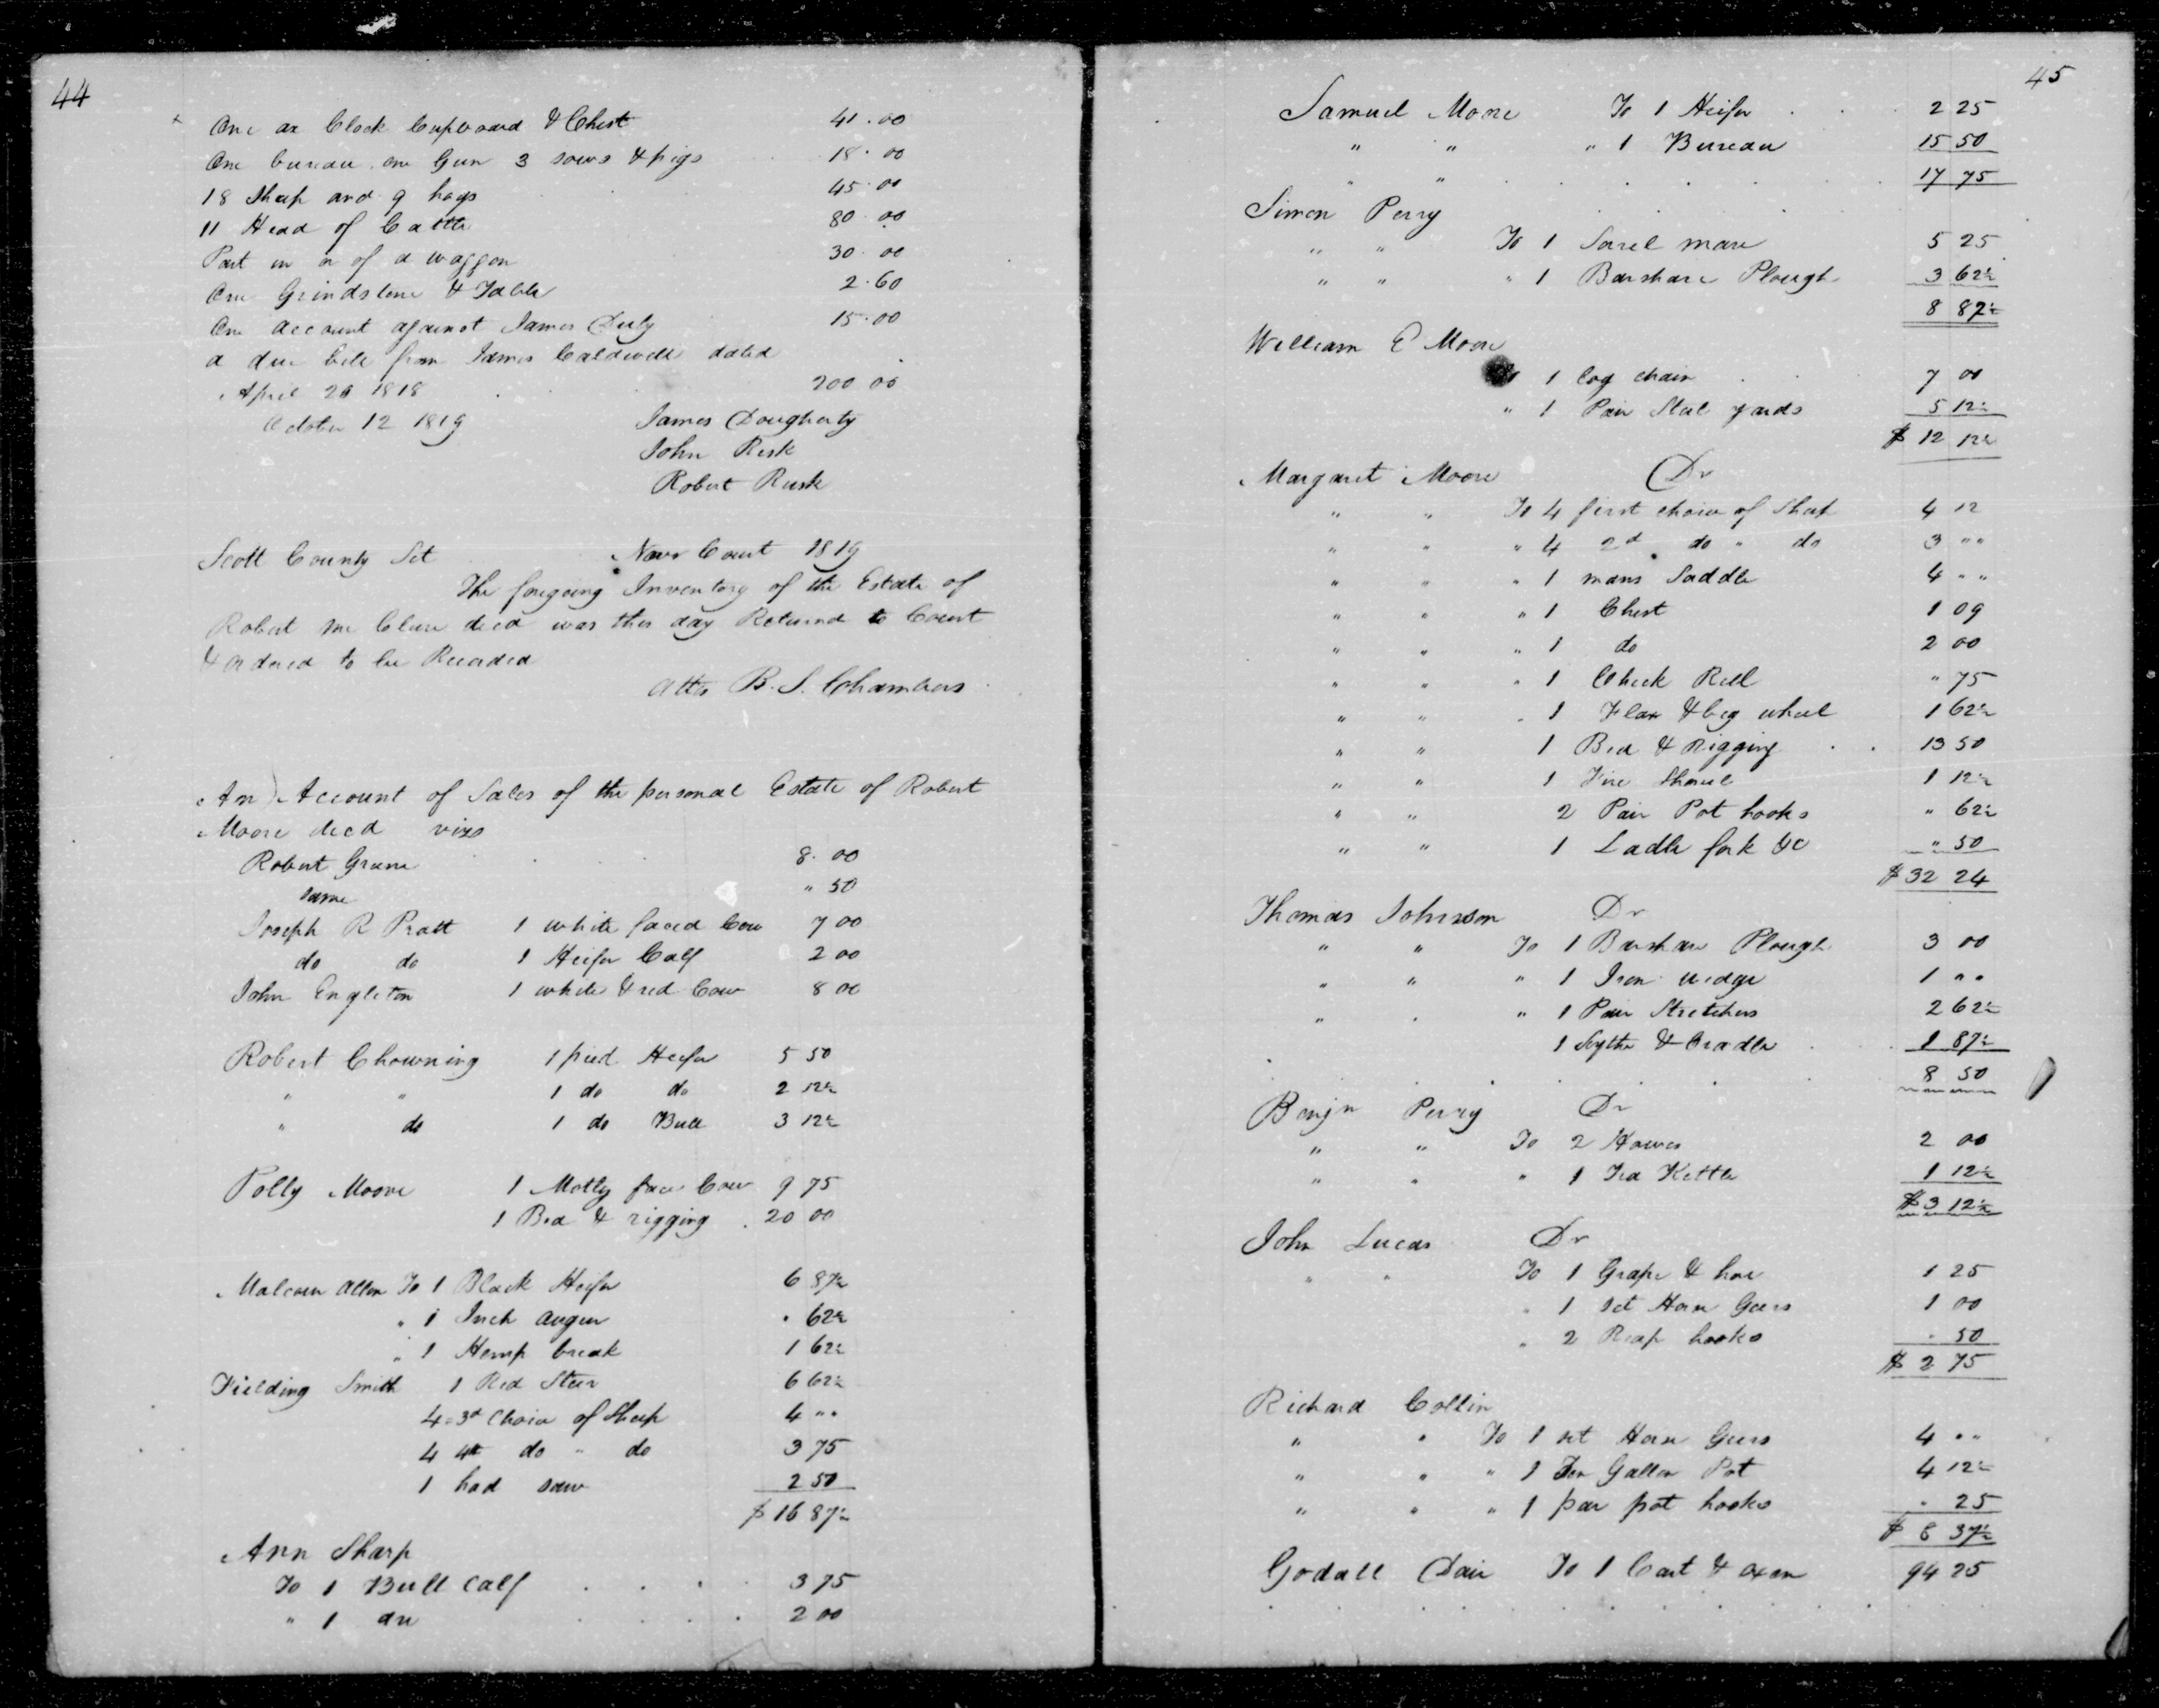 44
One ax Clock Cupboard & Chest 41.00
One bureau one Gun 3 sows & pigs 18.00
18 Sheep and 9 hogs 45.00
11 Head of Cattle 80.00
Part in of a waggon 30.00
One Grindstone & Table 2.60
One account against James Duly 15.00
a due bill from James Caldwell dated
April 20 1818 200 00
October 12 1819 James Dougherty
John Risk
Robert Rusk
Scott County Sct Novr Court 1819
The foregoing Inventory of the Estate of
Robert Mc Clure decd was this day Returned to Court
& ordered to be Recorded
Atts B. S. Chambers
An Account of Sales of the personal Estate of Robert
Moore decd
Robert Green 8.00
same " 50
Joseph R Pratt 1 white faced Cow 7 00
do do 1 Heifer Calf 2 00
John Engleton 1 white & red Cow 8 00
Robert Chowning 1 pied Heifer 5 50
" " 1 do do 2 12½
" do 1 do Bull 3 12½
Polly Moore 1 Motly face Cow 9 75
1 Bed & rigging 20 00
Malcom Allen To 1 Black Heifer 6 87½
" 1 Inch auger " 62½
" 1 Hemp break 1 62½
Fielding Smith 1 Red Steer 6 62½
4 = 3d Choice of Sheep 4 ""
4 4th do " do 3 75
1 had saw 2 50
$ 16 87½
Ann Sharp
To 1 Bull Calf 3 75
" 1 do 2 00
45
Samuel Moore To 1 Heifer 2 25
" " " 1 Bureau 15 50
" " 17 75
Simon Perry
" " To 1 Sorel mare 5 25
" " " 1 Barshare Plough 3 62½
8 87½
William E Moore
1 log chain 7 00
" 1 Pair Steel yards 5 12½
$ 12 12½
Margaret Moore Dr
" " To 4 first choice of Sheep 4 12
" " " 4 2d do " do 3 ""
" " " 1 mans Saddle 4 ""
" " " 1 Chest 1 09
" " " 1 do 2 00
" " " 1 Check Reel " 75
" " " 1 Flax & big wheel 1 62½
" " 1 Bed & Rigging 13 50
" " 1 Fire Shovel 1 12½
" " 2 Pair Pot hooks " 62½
" " 1 Ladle fork &c " 50
$ 32 24
Thomas Johnson Dr
" " To 1 Barshare Plough 3 00
" " " 1 Iron wedge 1 ""
" " " 1 Pair Stretchers 2 62½
1 Sythe & Cradle 1 87½
8 50
Benjn Perry Dr
" " To 2 2 00
" " " 1 Tea Kettle 1 12½
$ 3 12½
John Lucas Dr
" " To 1 Grape & hoe 1 25
" 1 set Horse Geers 1 00
" 2 Reap hooks " 50
$ 2 75
Richard Collin
" " To 1 set Horse Geers 4 ""
" " " 1 Ten Gallon Pot 4 12½
" " " 1 pair pot hooks " 25
$ 8 37½
Godall Dair To 1 Cart & oxen 94 25